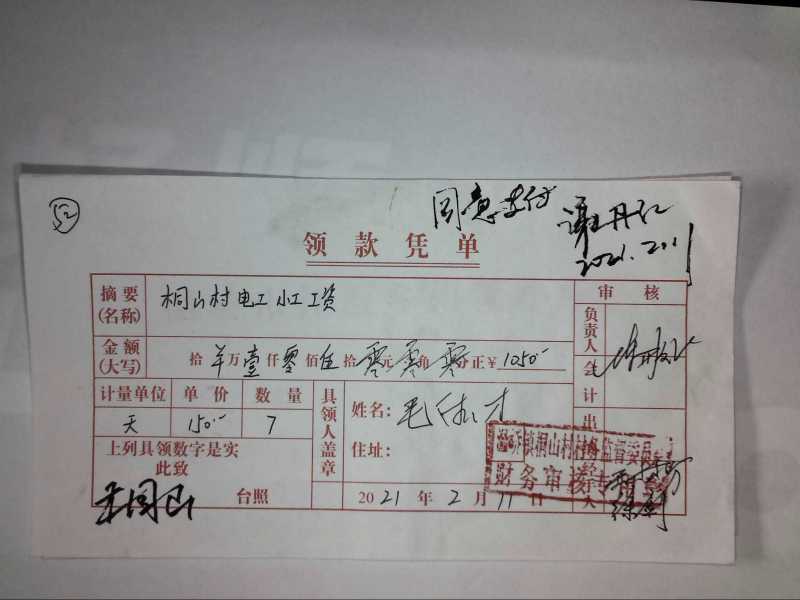 52
同意支付 谢丹红
2021.2.11
领款凭单
摘要(名称) 桐山村电工小工工资
审核
金额(大写) 拾 羊 万 壹 仟 零 佰 伍 拾 零 元 零 角 零 分正¥ 1050-
负责人
会计
计量单位 单价 数量
天 150.- 7
具领人盖章
姓名: 毛
住址:
上列具领数字是实
此致
台照
2021年2月11日
桥镇桐山村村务监督委员
财务审核